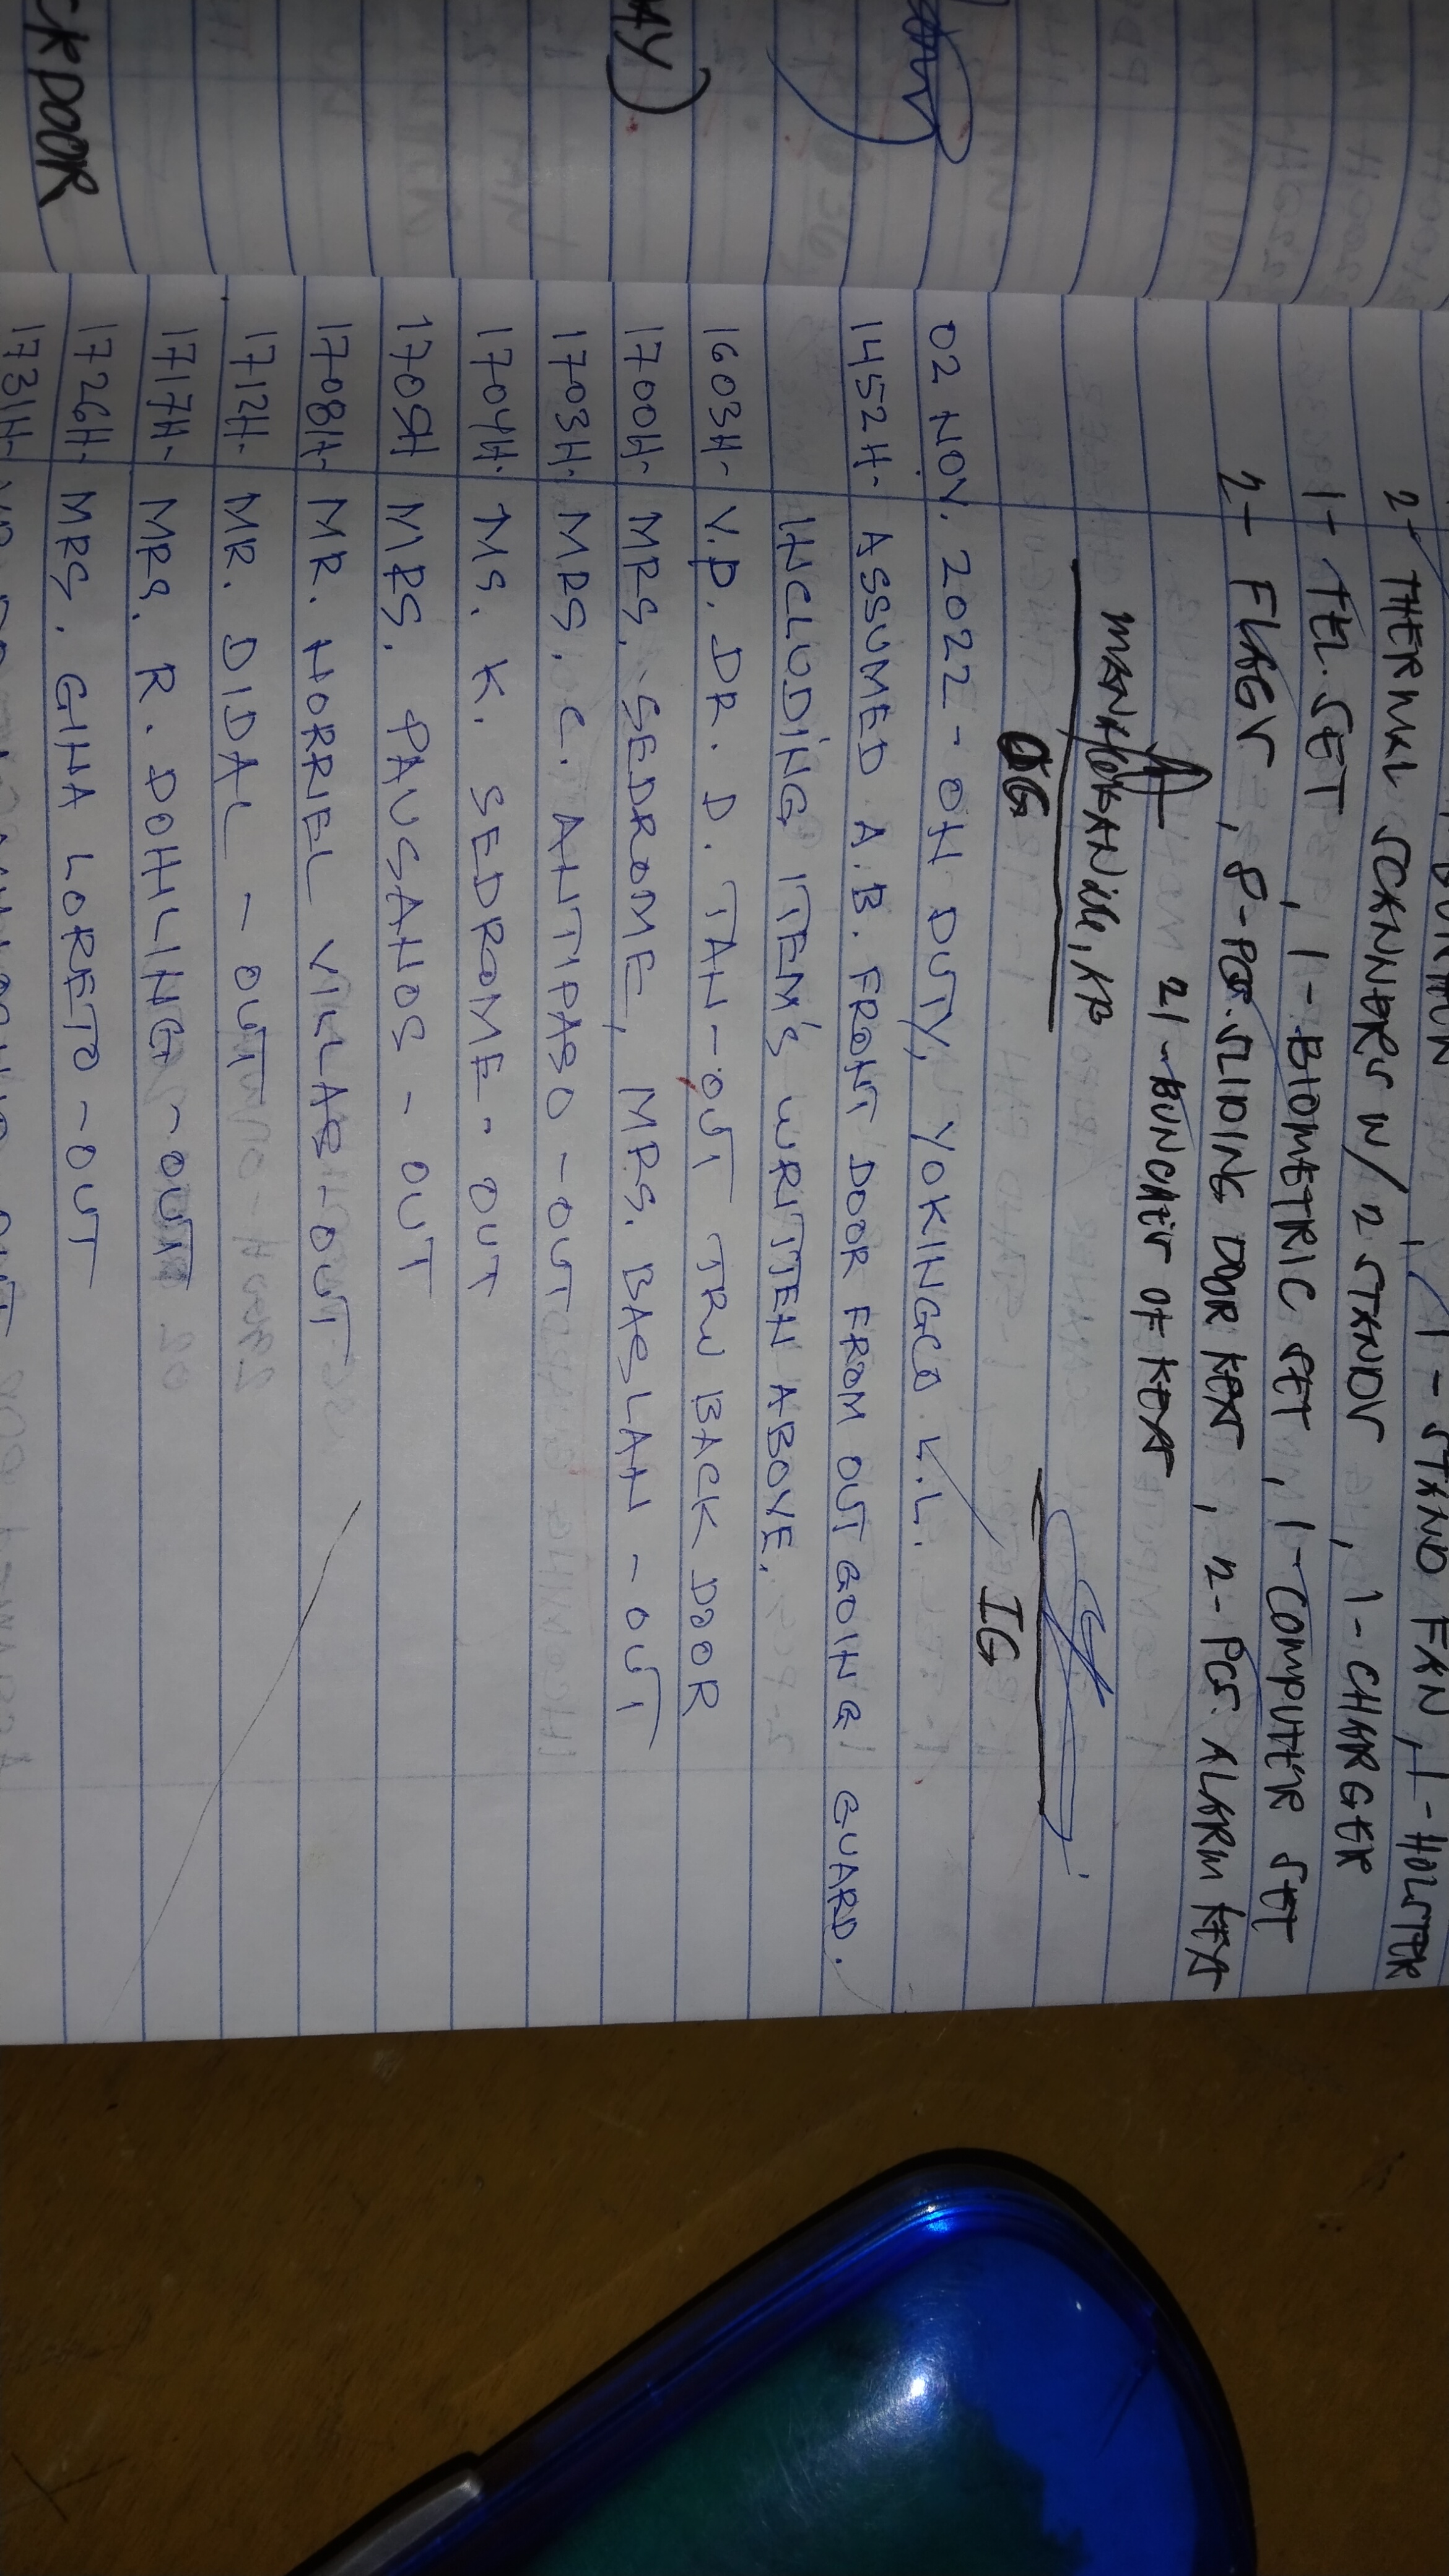 CKDOOR
AY)
1- STAND FAN, 1- HOLSTER
2- THERMAL SCANNERS W/ 2 STANDS, 1- CHARGER
1- TEL. SET, 1- BIOMETRIC SET, 1- COMPUTER SET
2- FLAGS, 8- PCS. SLIDING DOOR KEYS, 2- PCS. ALARM KEYS
21- BUNCHES OF KEYS
OG
IG
02 NOV. 2022 - ON DUTY, YOKINGCO L.L.
1452H- ASSUMED A.B. FRONT DOOR FROM OUT GOING GUARD.
INCLUDING ITEM'S WRITTEN ABOVE.
1603H- V.P. DR. D. TAN - OUT TRU BACK DOOR
1700H- MRS. SEDROME, MRS. BAGSLAN - OUT
1703H- MRS. C. ANTIPASO - OUT
1704H- MS. K. SEDROME - OUT
1705H MRS. PAUSANOS - OUT
1708H- MR. NORRIEL VILLAG - OUT
1712H- MR. DIDAL - OUT
1717H- MRS. R. POHLING - OUT
1726H- MRS. GINA LORETO - OUT
1731H-